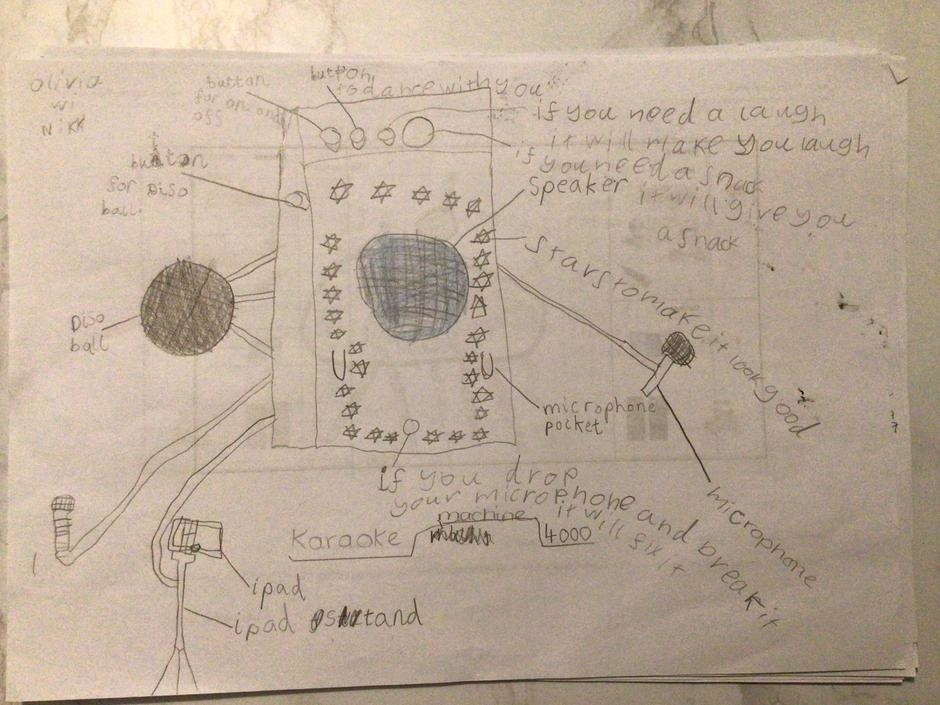 olivia
wi
NiKK
button
for on and
off
button
to dance with you
if you need a laugh
it will make you laugh
if
you need a snack
it will give you
a snack
Speaker
button
for Diso
ball
Stars to make it look good
Diso
ball
microphone
pocket
if you drop
your microphone and break it
it will fix it
microphone
Karaoke machine 4000
ipad
ipad stand